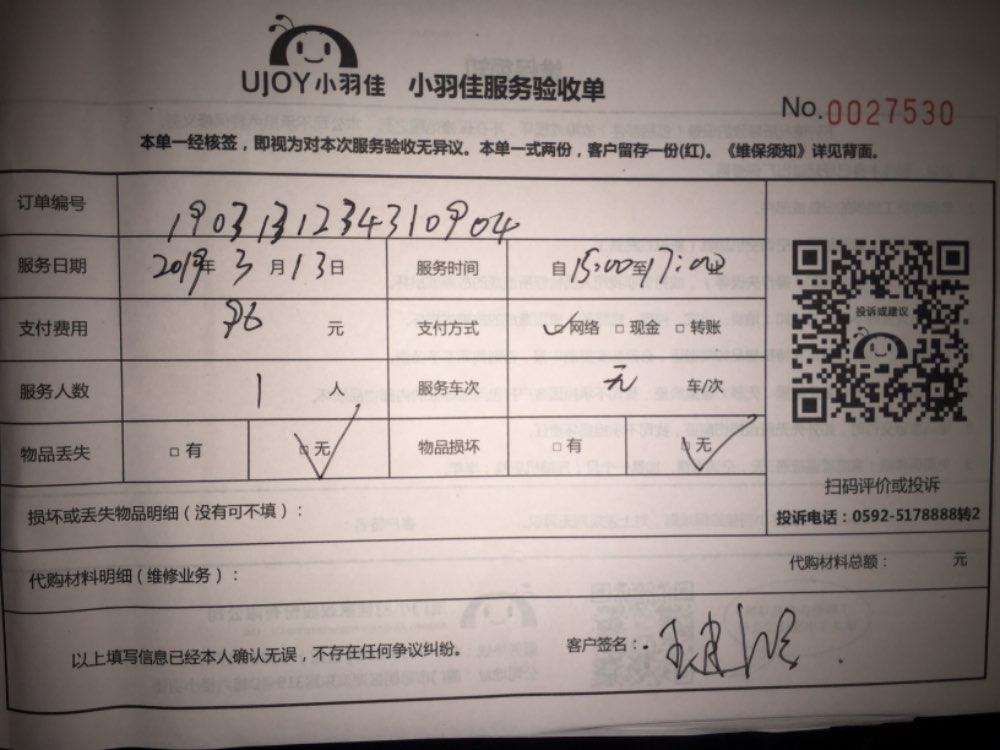 UJOY小羽佳 小羽佳服务验收单
No.0027530
本单一经核签，即视为对本次服务验收无异议。本单一式两份，客户留存一份(红)。《维保须知》详见背面。
订单编号 1903131234310904
服务日期 2019年3月13日 服务时间 自15:00至17:00止
支付费用 96元 支付方式 ✓网络 □现金 □转账
投诉或建议
服务人数 1人 服务车次 无 车/次
物品丢失 □有 ☑无 物品损坏 □有 ☑无
扫码评价或投诉
损坏或丢失物品明细（没有可不填）：
投诉电话：0592-5178888转2
代购材料明细（维修业务）：
代购材料总额： 元
以上填写信息已经本人确认无误，不存在任何争议纠纷。 客户签名：